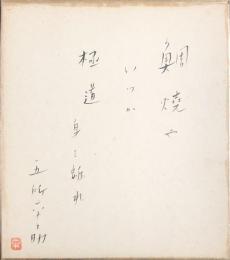 鯛焼や
いつか
極道
身を離れ
五所平之助